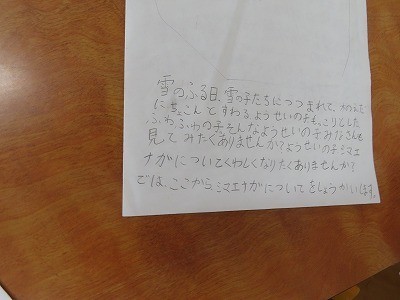 雪のふる日、雪の子たちにつつまれて、木のえだ
にちょこんとすわる、ようせいの子。もっこりとした
ふわふわの子そんなようせいの子みなさんも
見てみたくありませんか?ようせいの子シマエ
ナガについてくわしくなりたくありませんか?
では、ここから、シマエナガについてをしょうかいします。